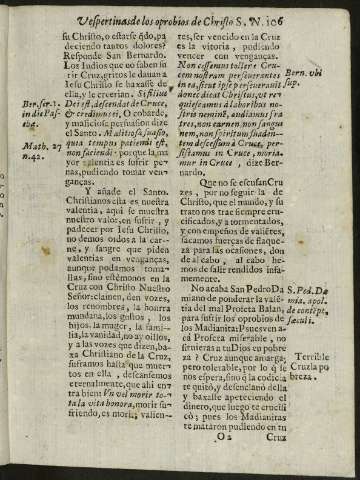 Vespertinas de los oprobios de Christo S. N. 106
su Christo, o estarse fido, pa
deciendo tantos dolores?
Responde San Bernardo.
Los Iudios que no saben su
frir Cruz, gritos le dauan a
Iesu Christo se baxasse de
ella, y le creerian. Si filius
Dei est, descendat de Cruce,
& credimus ei, O cobarde,
y maliciosa persuasion dize
el Santo. Malitiosa suasio,
quia tempus patiendi est,
non feriendi: porque la ma
yor valentia es sufrir pe-
nas, pudiendo tomar ven-
ganças.
Y añade el Santo.
Christianos esta es nuestra
valentia, aqui se muestra
nuestro valor, en sufrir, y
padecer por Iesu Christo,
no demos oidos a la car-
ne, y sangre que piden
valentias en venganças,
aunque podamos toma-
llas, sino estemonos en la
Cruz con Christo Nuestro
Señor: clamen, den vozes,
los renombres, la honrra
mundana, los gustos, los
hijos, la muger, la fami-
lia, la vanidad, no ay oillos,
y a las vozes que dizen, ba-
xa Christiano de la Cruz,
suframos hasta que muer-
tos en ella, descansemos
eternalmente, que ahi en-
tra bien: Vn vel morir to-
ta la vita honora, morir su-
friendo, es moria, valien-
Ber. ser. 1.
in die Pas-
cha.
Math. 27
n. 42.
tes, ser vencido en la Cruz
es la vitoria, pudiendo
vencer con venganças.
Non ceßemus tollere Cru-
cem nostram perseuerantes
in ea, sicut ipse perseuerauit
donec dicat Christus, vt re-
quiescamus à laboribus no-
stris neminẽ, audiamus fra
tres, non carnem non sangui
nem, non spiritum suadẽn-
tem descensum à Cruce, per-
sistamus in Cruce, moria-
mur in Cruce, dize Ber-
nardo.
Que no se escusan Cru
zes, por no seguir la de
Christo, que el mundo, y su
trato nos trae siempre cru-
cificados, y a tormentados,
y con empeños de valiẽtes,
sacamos fuerças de flaque-
za para las ocasiones, don
de al cabo, al cabo he-
mos de salir rendidos infa-
memente.
No acaba San Pedro Da
miano de ponderar la valẽ-
tia del mal Profeta Balan,
para sufrir los oprobios de
los Madianitas: Pues ven a-
cà Profeta miserable, no
siruieras a tu Dios en pobre
za? Cruz aunque amarga,
pero tolerable, por lo q̃ se
nos espera, sino q̃ la codicia
te quitò, y desençlauò della
y baxaste apeteciendo el
dinero, que luego te crucifi
cò; pues los Madianitas
te mataron pudiendo en tu
Bern. vbi
sup.
S. Ped. Da
mia. apol.
de contẽpt.
sæculi.
Terrible
Cruz la po
breza.
O 2 Cruz